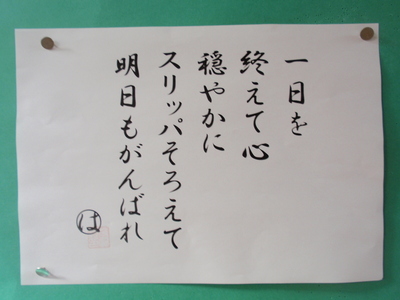 一日を
終えて心
穏やかに
スリッパそろえて
明日もがんばれ
は